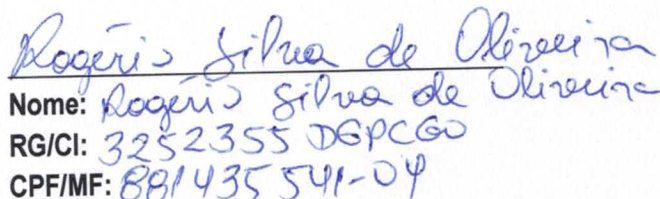 Rogério Silva de Oliveira
Nome: Rogério Silva de Oliveira
RG/CI: 3252355 DGPCGO
CPF/MF: 881435541-04